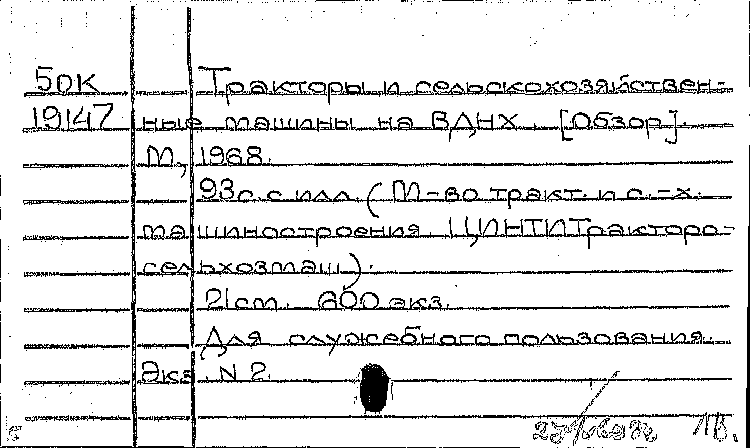 50К Тракторы и сельскохозяйствен-
19147 ные машины на ВДНХ. [Обзор].
М., 1968.
93с. с илл. (М-во тракт. и с.-х.
машиностроения. ЦИНТИТракторо-
сельхозмаш).
21см. 600 экз.
Для служебного пользования.
Экз. N 2.
1В.